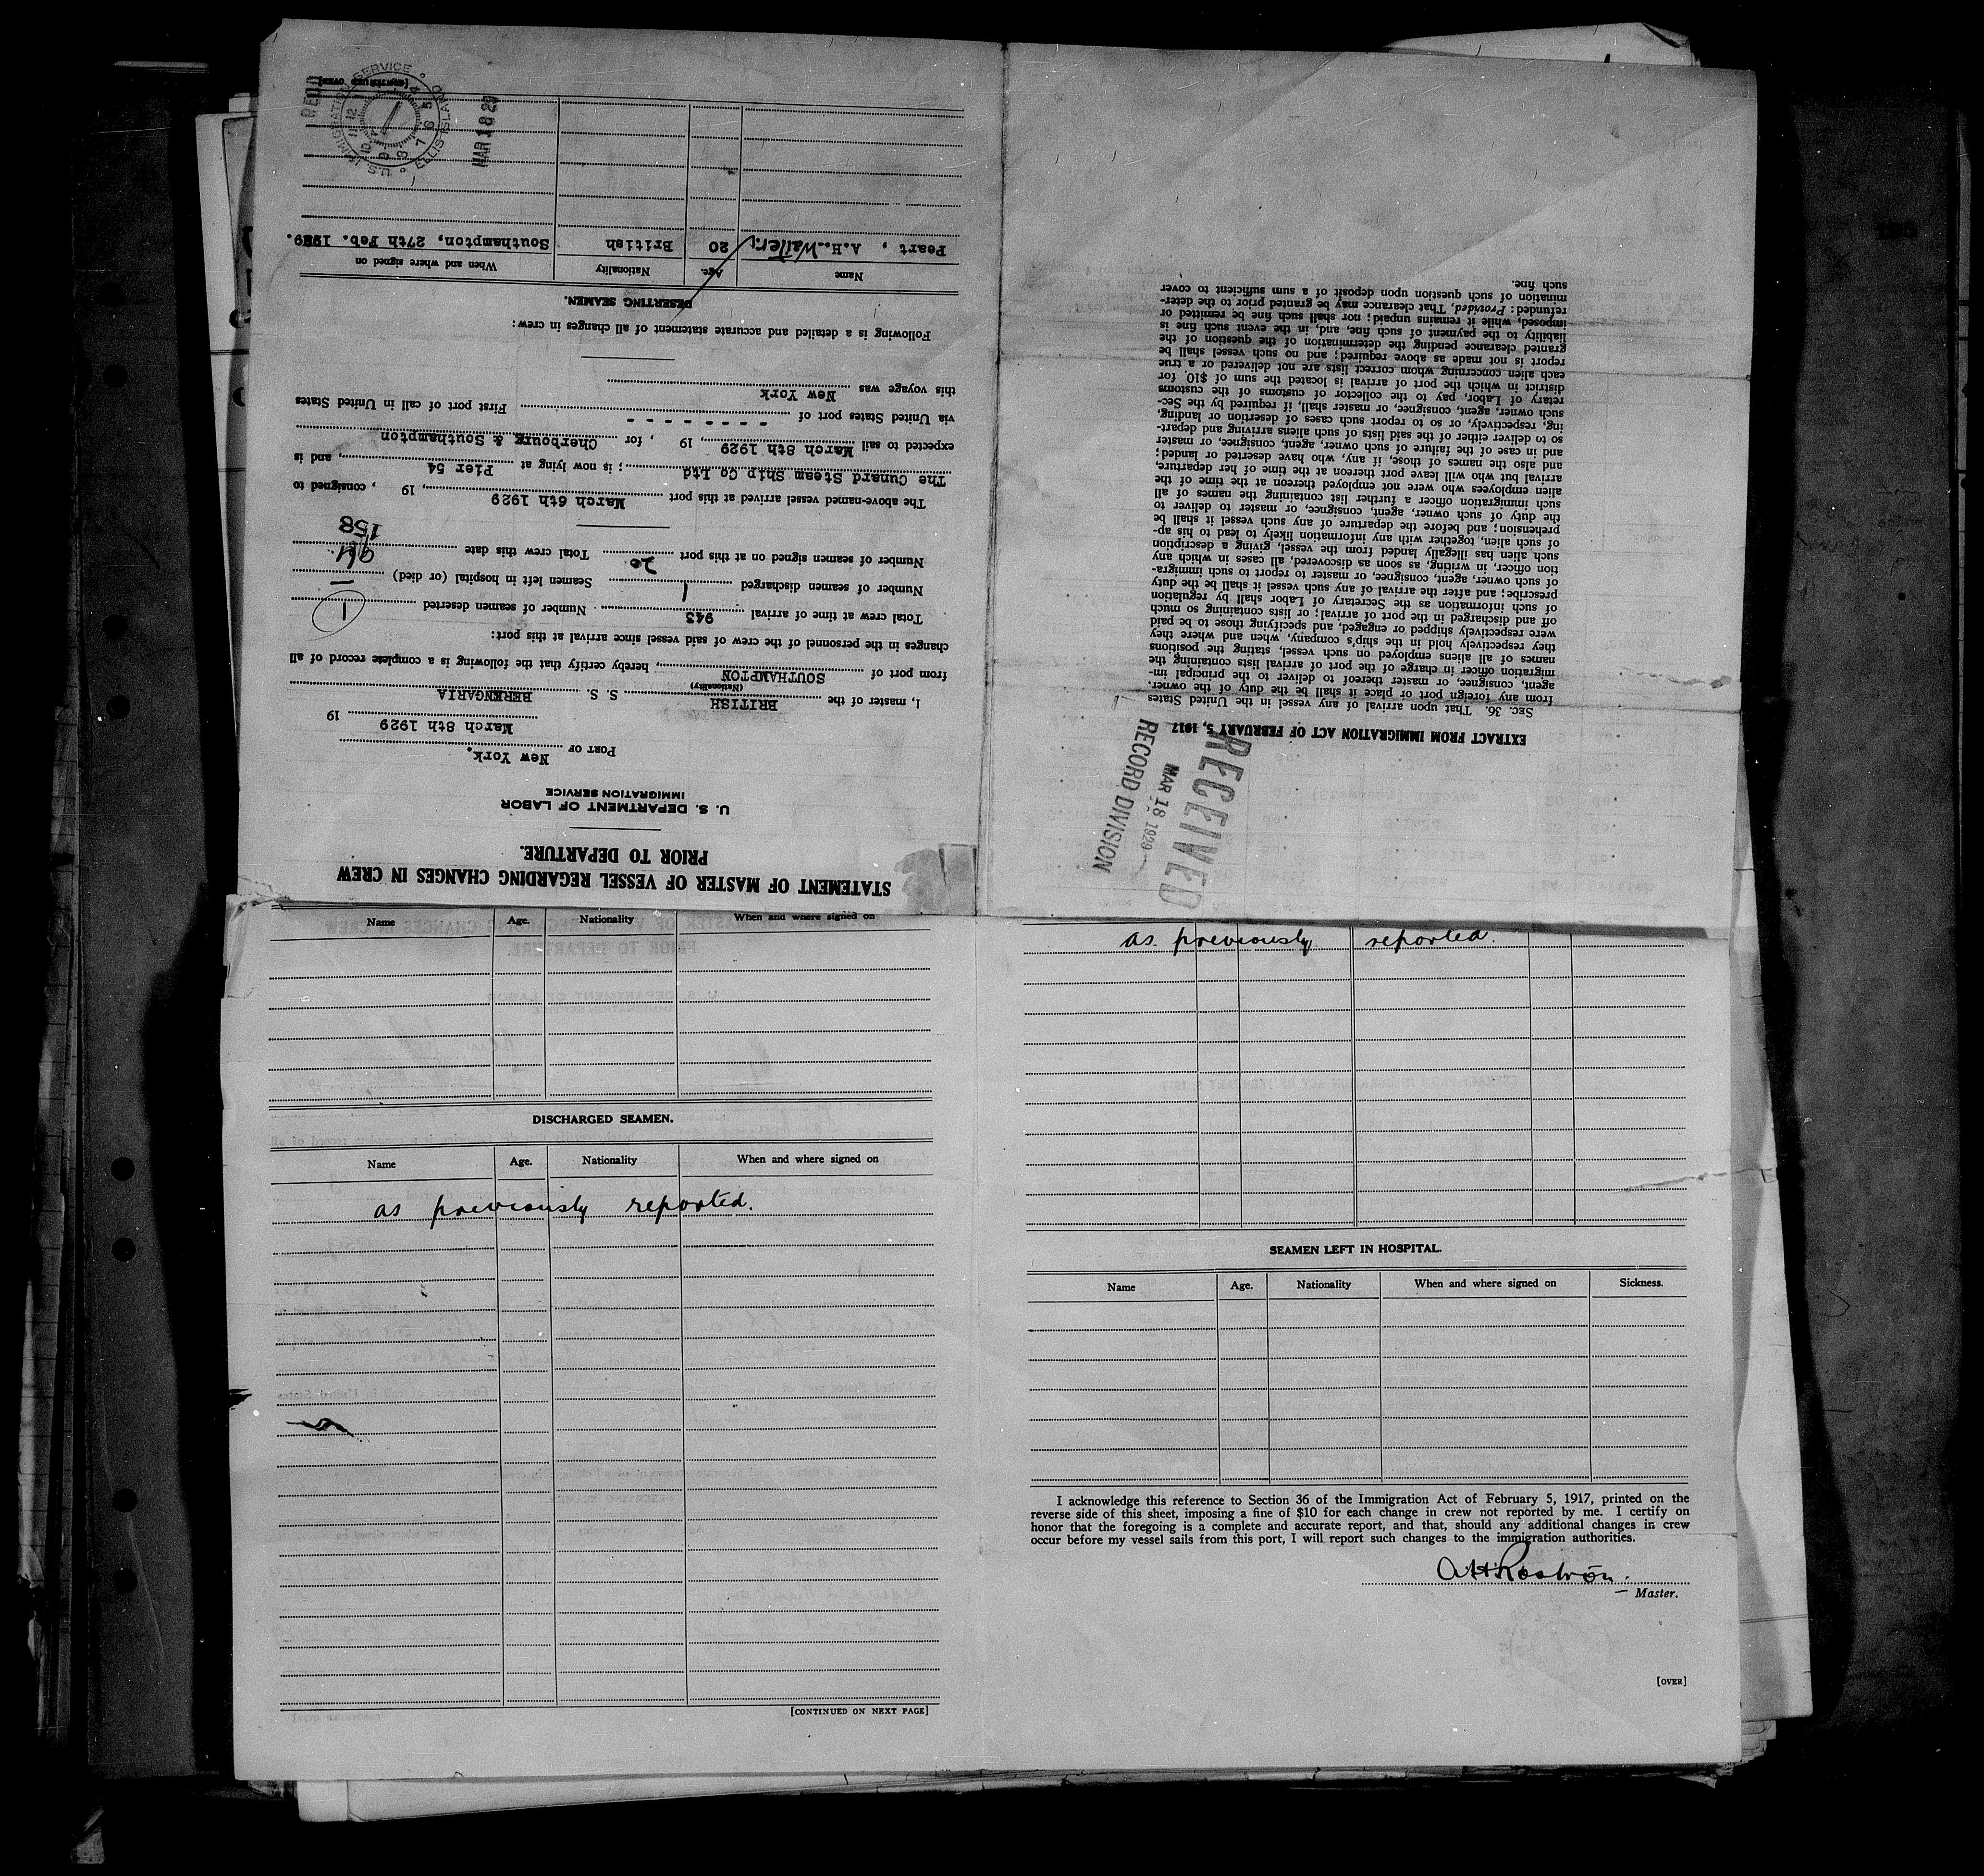 STATEMENT OF MASTER OF VESSEL REGARDING CHANGES IN CREW
PRIOR TO DEPARTURE.
U. S. DEPARTMENT OF LABOR
IMMIGRATION SERVICE
PORT OF New York.
March 8th 1929 19
I, master of the BRITISH S. S. BERENGARIA
(Nationality)
from port of SOUTHAMPTON, hereby certify that the following is a complete record of all
changes in the personnel of the crew of said vessel since arrival at this port:
Total crew at time of arrival 943 Number of seamen deserted 1
Number of seamen discharged 1 Seamen left in hospital (or died) —
Number of seamen signed on at this port 20 Total crew this date
158
The above-named vessel arrived at this port March 6th 1929, 19 , consigned to
The Cunard Steam Ship Co Ltd; is now lying at Pier 54, and is
expected to sail March 8th 1929, 19 , for Cherbourg & Southampton
via United States port of - - - - - - - First port of call in United States
this voyage was New York
Following is a detailed and accurate statement of all changes in crew:
DESERTING SEAMEN.
Name Age. Nationality When and where signed on
Peart, A.H. Waiter. 20 British Southampton, 27th Feb. 1929.
[CONTINUED OVER]
U.S. IMMIGRATION SERVICE ELLIS ISLAND
MAR 18 29
EXTRACT FROM IMMIGRATION ACT OF FEBRUARY 5, 1917
SEC. 36. That upon arrival of any vessel in the United States
from any foreign port or place it shall be the duty of the owner,
agent, consignee, or master thereof to deliver to the principal im-
migration officer in charge of the port of arrival lists containing the
names of all aliens employed on such vessel, stating the positions
they respectively hold in the ship's company, when and where they
were respectively shipped or engaged, and specifying those to be paid
off and discharged in the port of arrival; or lists containing so much
of such information as the Secretary of Labor shall by regulation
prescribe; and after the arrival of any such vessel it shall be the duty
of such owner, agent, consignee, or master to report to such immigra-
tion officer, in writing, as soon as discovered, all cases in which any
such alien has illegally landed from the vessel, giving a description
of such alien, together with any information likely to lead to his ap-
prehension; and before the departure of any such vessel it shall be
the duty of such owner, agent, consignee, or master to deliver to
such immigration officer a further list containing the names of all
alien employees who were not employed thereon at the time of the
arrival but who will leave port thereon at the time of her departure,
and also the names of those, if any, who have deserted or landed;
and in case of the failure of such owner, agent, consignee, or master
so to deliver either of the said lists of such aliens arriving and depart-
ing, respectively, or so to report such cases of desertion or landing,
such owner, agent, consignee, or master, shall, if required by the Sec-
retary of Labor, pay to the collector of customs of the customs
district in which the port of arrival is located the sum of $10 for
each alien concerning whom correct lists are not delivered or a true
report is not made as above required; and no such vessel shall be
granted clearance pending the determination of the question of the
liability to the payment of such fine, and, in the event such fine is
imposed, while it remains unpaid; nor shall such fine be remitted or
refunded: Provided, That clearance may be granted prior to the deter-
mination of such question upon deposit of a sum sufficient to cover
such fine.
RECEIVED
MAR 18 1929
RECORD DIVISION
Name Age. Nationality When and where signed on
DISCHARGED SEAMEN.
Name Age. Nationality When and where signed on
as previously reported.
[CONTINUED ON NEXT PAGE]
as previously reported.
SEAMEN LEFT IN HOSPITAL.
Name Age. Nationality When and where signed on Sickness.
I acknowledge this reference to Section 36 of the Immigration Act of February 5, 1917, printed on the
reverse side of this sheet, imposing a fine of $10 for each change in crew not reported by me. I certify on
honor that the foregoing is a complete and accurate report, and that, should any additional changes in crew
occur before my vessel sails from this port, I will report such changes to the immigration authorities.
A H Rostron.
Master.
[OVER]